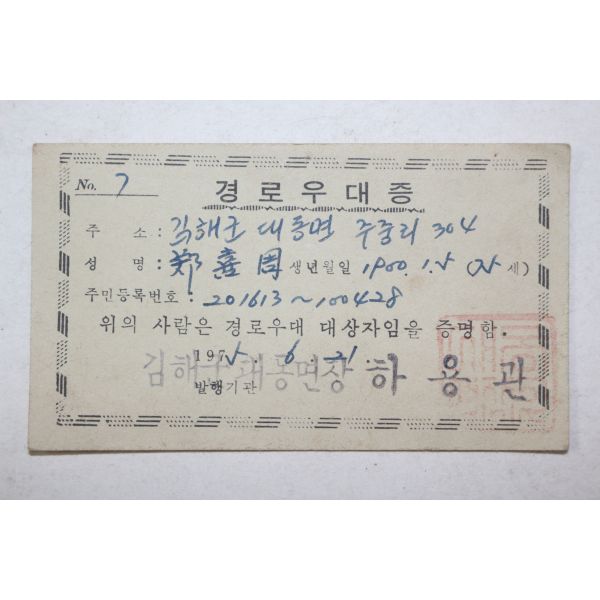 No. 7
경로우대증
주 소 : 김해군 대동면 주중리 304
성 명 : 鄭喜周 생년월일 1900. 1. 5 (75세)
주민등록번호 : 201613~100428
위의 사람은 경로우대 대상자임을 증명함.
1975 6 21.
발행기관 김해군대동면장 하용관